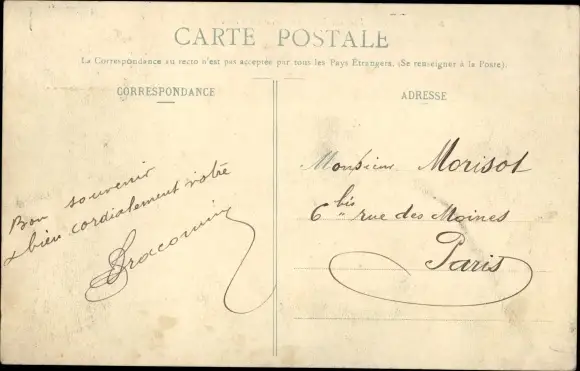 CARTE POSTALE
La Correspondance au recto n'est pas acceptée par tous les Pays Étrangers. (Se renseigner à la Poste).
CORRESPONDANCE
Bon souvenir
& bien cordialement vôtre
ADRESSE
Monsieur Morisot
6 bis rue des Moines
Paris